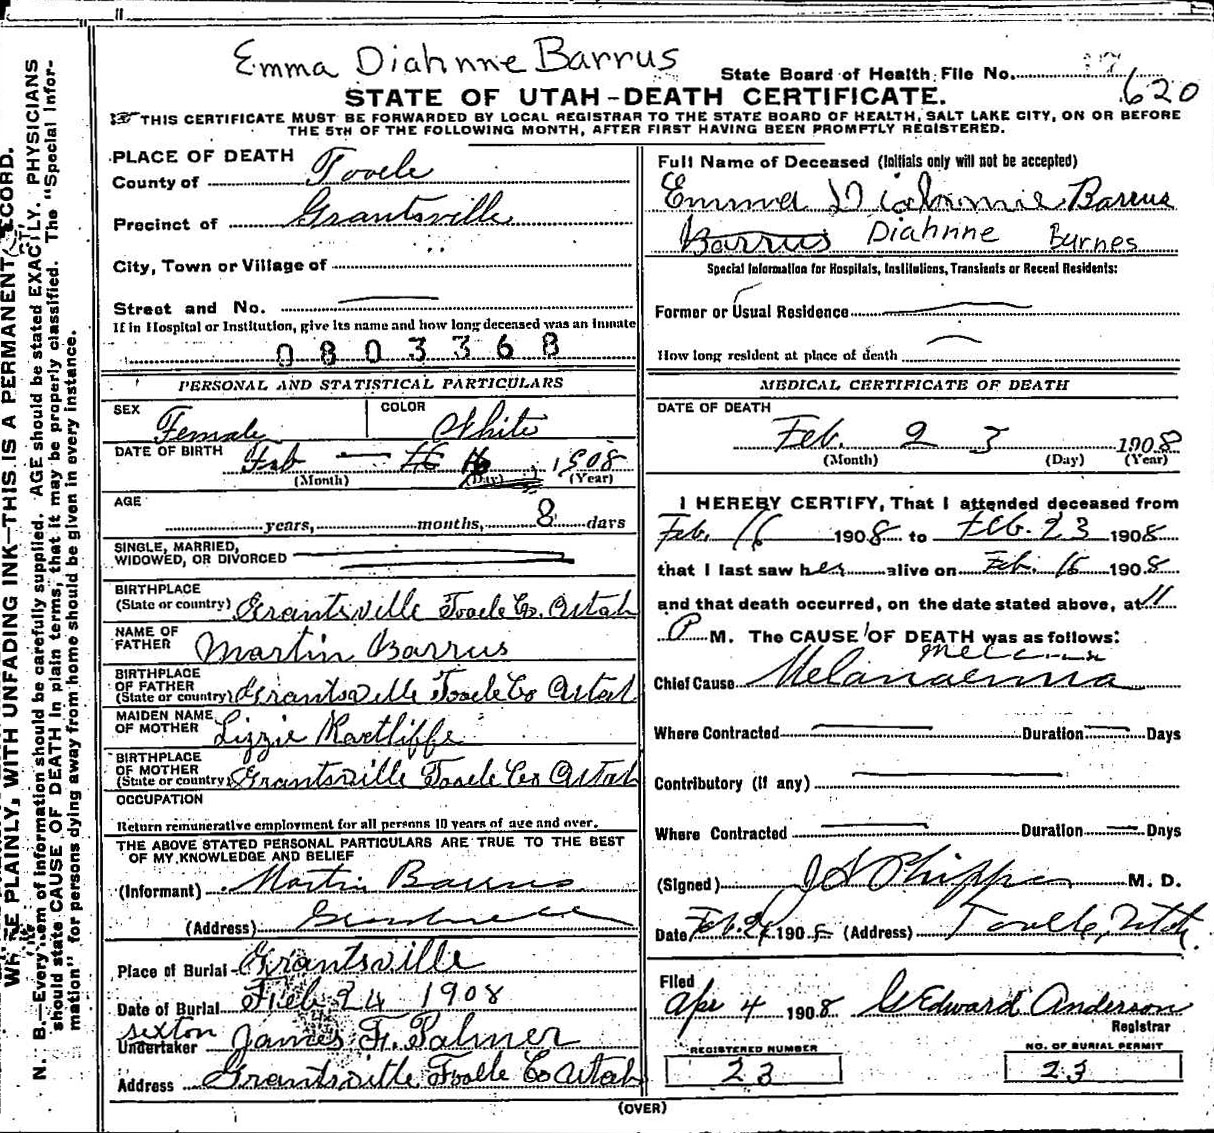 Emma Diahnne Barrus
State Board of Health File No. 620
STATE OF UTAH-DEATH CERTIFICATE.
THIS CERTIFICATE MUST BE FORWARDED BY LOCAL REGISTRAR TO THE STATE BOARD OF HEALTH, SALT LAKE CITY, ON OR BEFORE
THE 5TH OF THE FOLLOWING MONTH, AFTER FIRST HAVING BEEN PROMPTLY REGISTERED.
PLACE OF DEATH
County of Tooele
Precinct of Grantsville
City, Town or Village of
Street and No.
If in Hospital or Institution, give its name and how long deceased was an inmate
0803368
PERSONAL AND STATISTICAL PARTICULARS
SEX Female COLOR White
DATE OF BIRTH Feb 16, 1908
(Month) (Day) (Year)
AGE
years, months, 8 days
SINGLE, MARRIED,
WIDOWED, OR DIVORCED
BIRTHPLACE
(State or country) Grantsville Tooele Co. Utah
NAME OF
FATHER Martin Barrus
BIRTHPLACE
OF FATHER
(State or country) Grantsville Tooele Co Utah
MAIDEN NAME
OF MOTHER Lizzie Ractliffe
BIRTHPLACE
OF MOTHER
(State or country) Grantsville Tooele Co Utah
OCCUPATION
Return remunerative employment for all persons 10 years of age and over.
THE ABOVE STATED PERSONAL PARTICULARS ARE TRUE TO THE BEST
OF MY KNOWLEDGE AND BELIEF
(Informant) Martin Barrus
(Address)
Place of Burial Grantsville
Date of Burial Feb 24 1908
sexton
Undertaker James F. Palmer
Address Grantsville Tooele Co Utah
Full Name of Deceased (Initials only will not be accepted)
Emma Diahnnie Barrus
Barrus Diahnne Burnes
Special Information for Hospitals, Institutions, Transients or Recent Residents:
Former or Usual Residence
How long resident at place of death
MEDICAL CERTIFICATE OF DEATH
DATE OF DEATH
Feb. 23 1908
(Month) (Day) (Year)
I HEREBY CERTIFY, That I attended deceased from
Feb. 16 1908 to Feb. 23 1908
that I last saw her alive on Feb. 16 1908
and that death occurred, on the date stated above, at 11
P M. The CAUSE OF DEATH was as follows:
Chief Cause Melanaemia
Where Contracted Duration Days
Contributory (if any)
Where Contracted Duration Days
(Signed) J A Phipps M. D.
Date Feb. 24 1908 (Address) Tooele, Utah.
Filed
Apr 4 1908 G Edward Anderson
Registrar
REGISTERED NUMBER NO. OF BURIAL PERMIT
23 23
(OVER)
PLAINLY, WITH UNFADING INK—THIS IS A PERMANENT RECORD.
N. B.—Every item of information should be carefully supplied. AGE should be stated EXACTLY. PHYSICIANS
should state CAUSE OF DEATH in plain terms, that it may be properly classified. The "Special Infor-
mation" for persons dying away from home should be given in every instance.